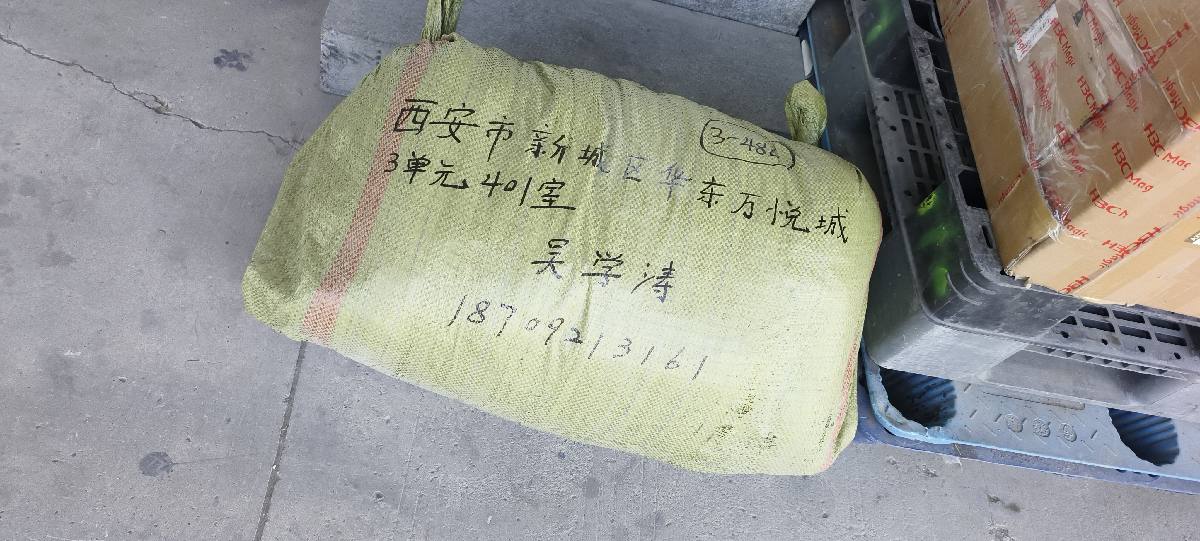 西安市新城区华东万悦城
3-482
3单元401室
吴学涛
18709213161
H3C Magic
H3C Magic
H3C Magic
H3C Magic